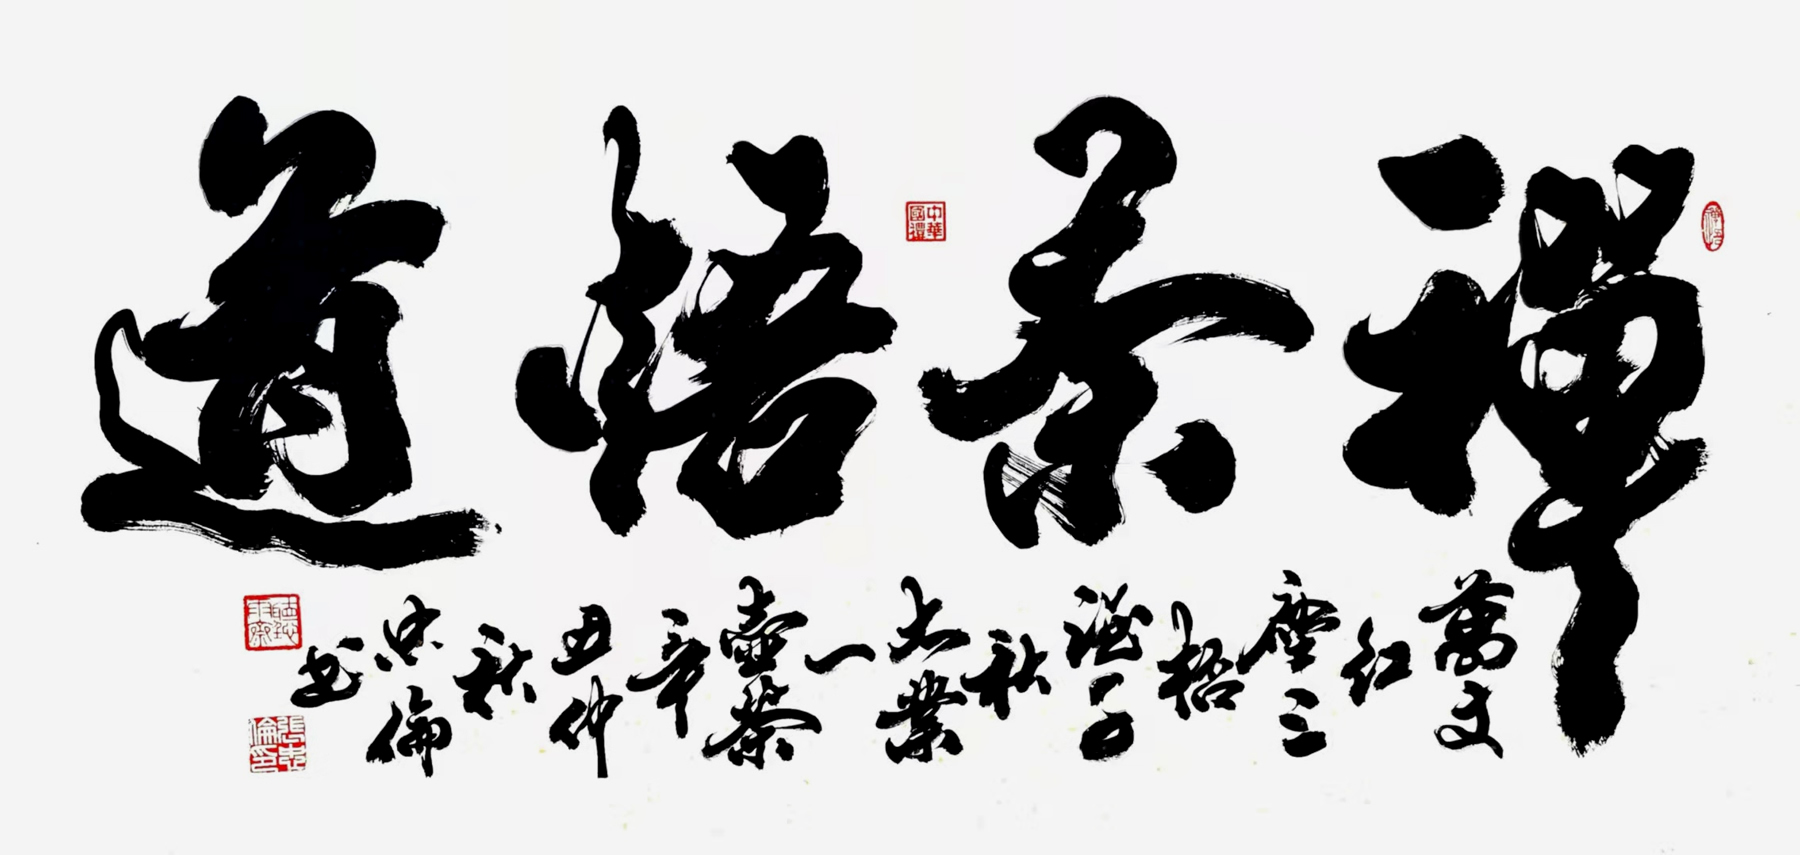 禪茶悟道
萬丈紅塵三杯酒千秋大業一壺茶辛丑仲秋忠倫书
中華國禮
張忠倫印